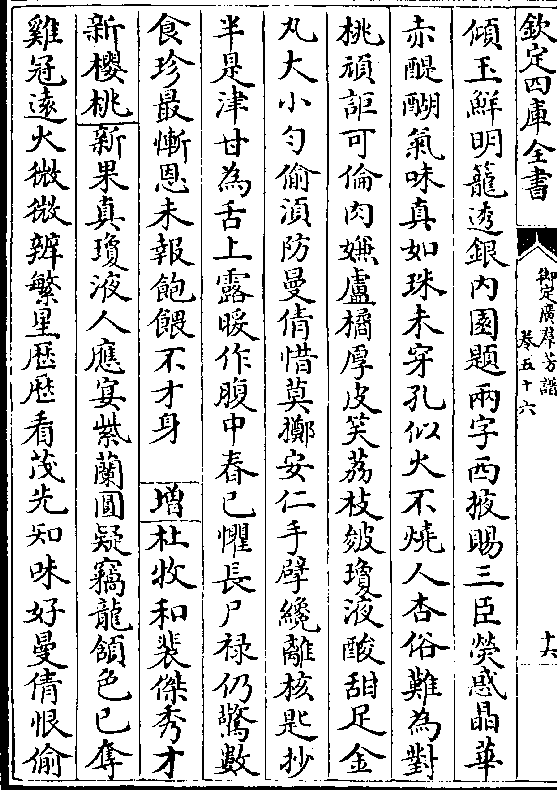 欽定四庫全書
御定廣羣芳譜
卷五十六
十六
傾玉鮮明籠透銀内園題兩字西掖賜三臣熒惑晶華
赤醍醐氣味真如珠未穿孔似火不燒人杏俗難為對
桃頑詎可倫肉嫌盧橘厚皮笑荔枝皴瓊液酸甜足金
丸大小勻偷須防曼倩惜莫擲安仁手擘纔離核匙抄
半是津甘為舌上露暖作腹中春已懼長尸禄仍驚數
食珍最慚恩未報飽餵不才身 增杜牧和裴傑秀才
新櫻桃新果真瓊液人應宴紫蘭圓疑竊龍頷色已奪
雞冠遠火微微辨繁星歷歷看茂先知味好曼倩恨偷